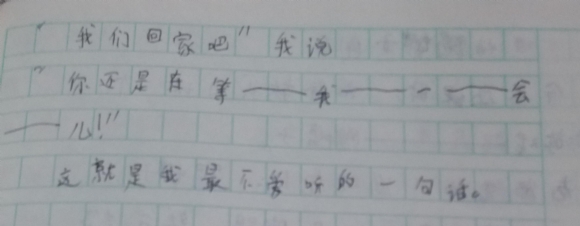 “我们回家吧”我说
“你还是在等——我——一——会
——儿!”
这就是我最不爱听的一句话。